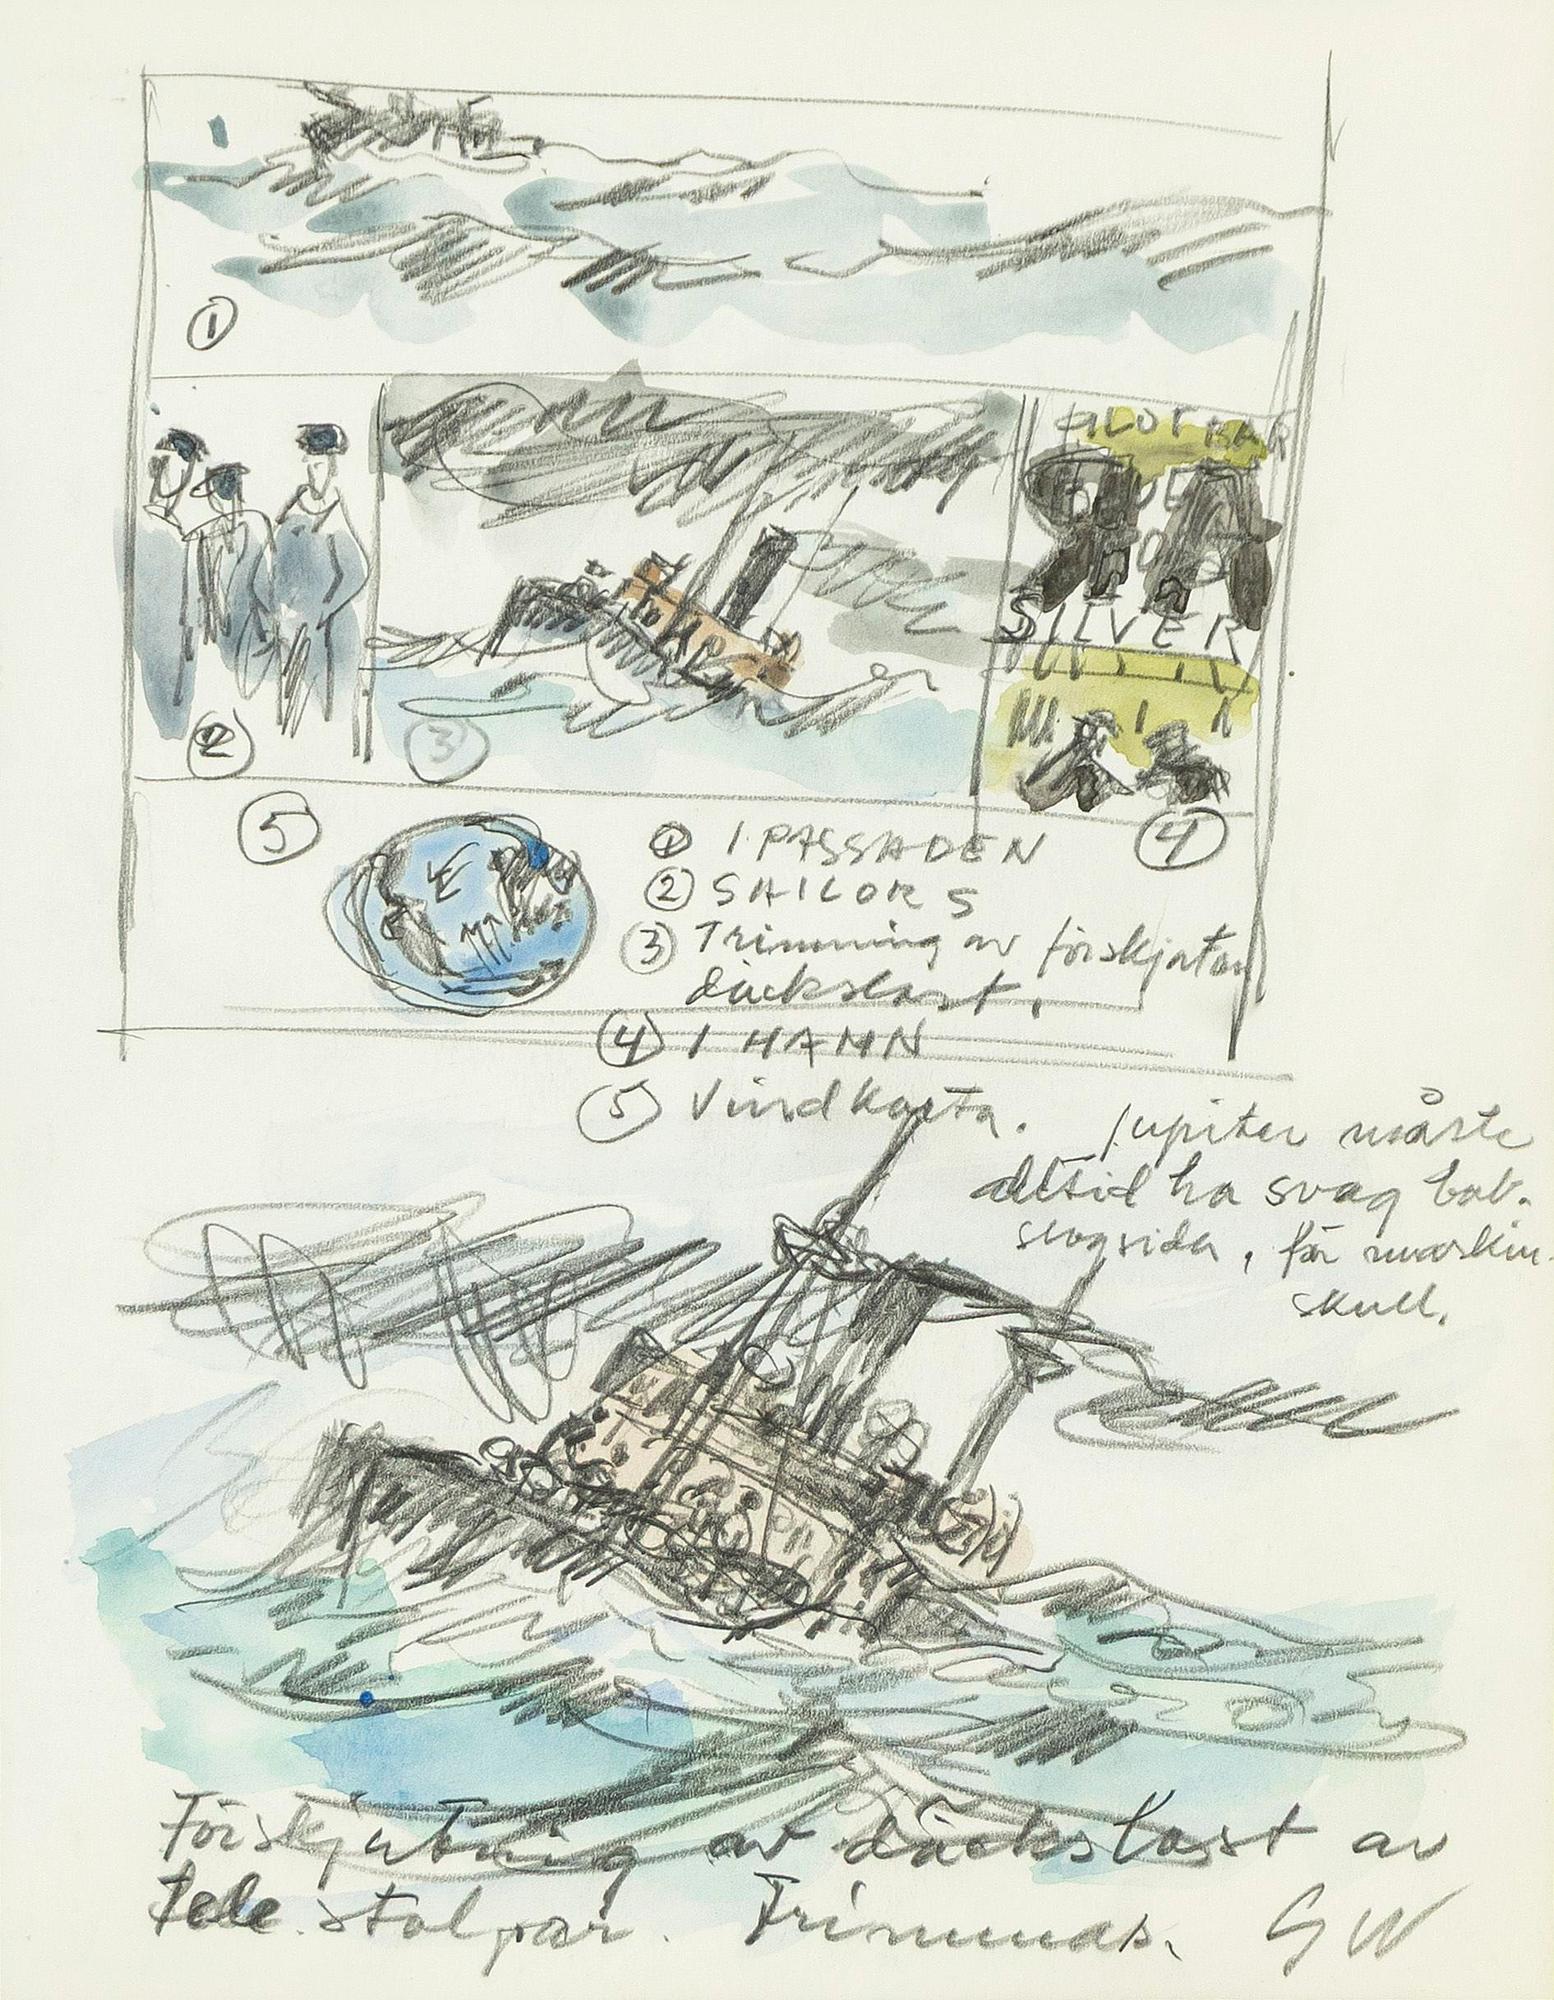 ①
PILOT BAR
SILVER
②
③
④
⑤
① I PASSADEN
② SAILORS
③ Trimning av förskjuten
däckslast.
④ I HAMN
⑤ Vindkarta.
Jupiter måste
alltid ha svag bab.
slagsida, för maskin.
skull.
Förskjutning av däckslast av
tele.stolpar. Trimmas.
GW